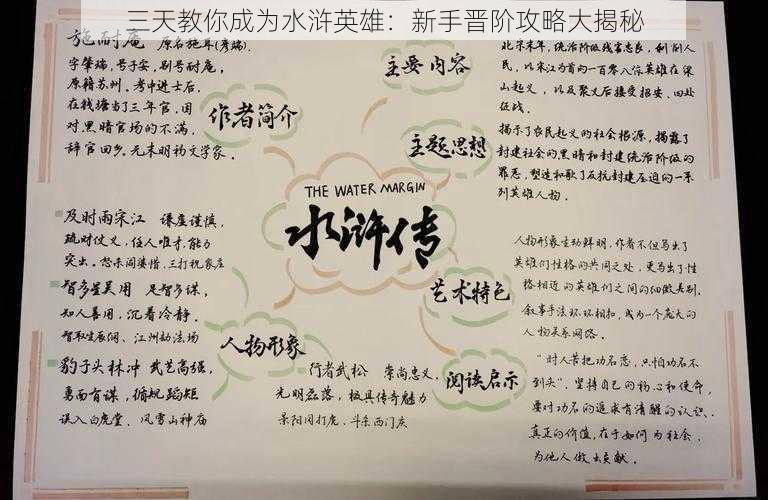 三天教你成为水浒英雄：新手晋阶攻略大揭秘
施耐庵 原名施耳(彦端),
字肇瑞,号子安,别号耐庵,
原籍苏州。考中进士后,
在钱塘当了三年官,因
对黑暗官场的不满,
辞官回乡。元末明初文学家。
作者简介
主要内容
北宋末年,统治阶级残害忠良,剥削人
民,以宋江为首的一百零八位英雄在梁
山起义,以及聚义后接受招安、四处
征战。
主题思想
揭示了农民起义的社会根源,揭露了
封建社会的黑暗和封建统治阶级的
罪恶,塑造和歌了反抗封建压迫的一系
列英雄人物。
THE WATER MARGIN
水浒传
及时雨宋江 谦虚谨慎,
疏财仗义,任人唯才,能力
突出。怒杀阎婆惜,三打祝家庄
智多星吴用 足智多谋,
知人善用,沉着冷静。
智取生辰纲、江州劫法场
豹子头林冲 武艺高强,
勇而有谋,循规蹈矩
误入白虎堂、风雪山神庙
人物形象
行者武松 崇尚忠义,
光明磊落,极具传奇魅力
景阳冈打虎、斗杀西门庆
艺术特色
人物形象生动鲜明,作者不但写出了
英雄们性格的共同之处,更写出了性
格相近的英雄们之间的细微差别。
叙事手法环环相扣,成为一个庞大的
人物关系网络。
阅读启示
"时人苦把功名恋,只怕功名不
到头"。坚持自己的初心和使命,
要对功名的追求有清醒的认识。
真正的价值,在于如何为社会,
为他人做出贡献。